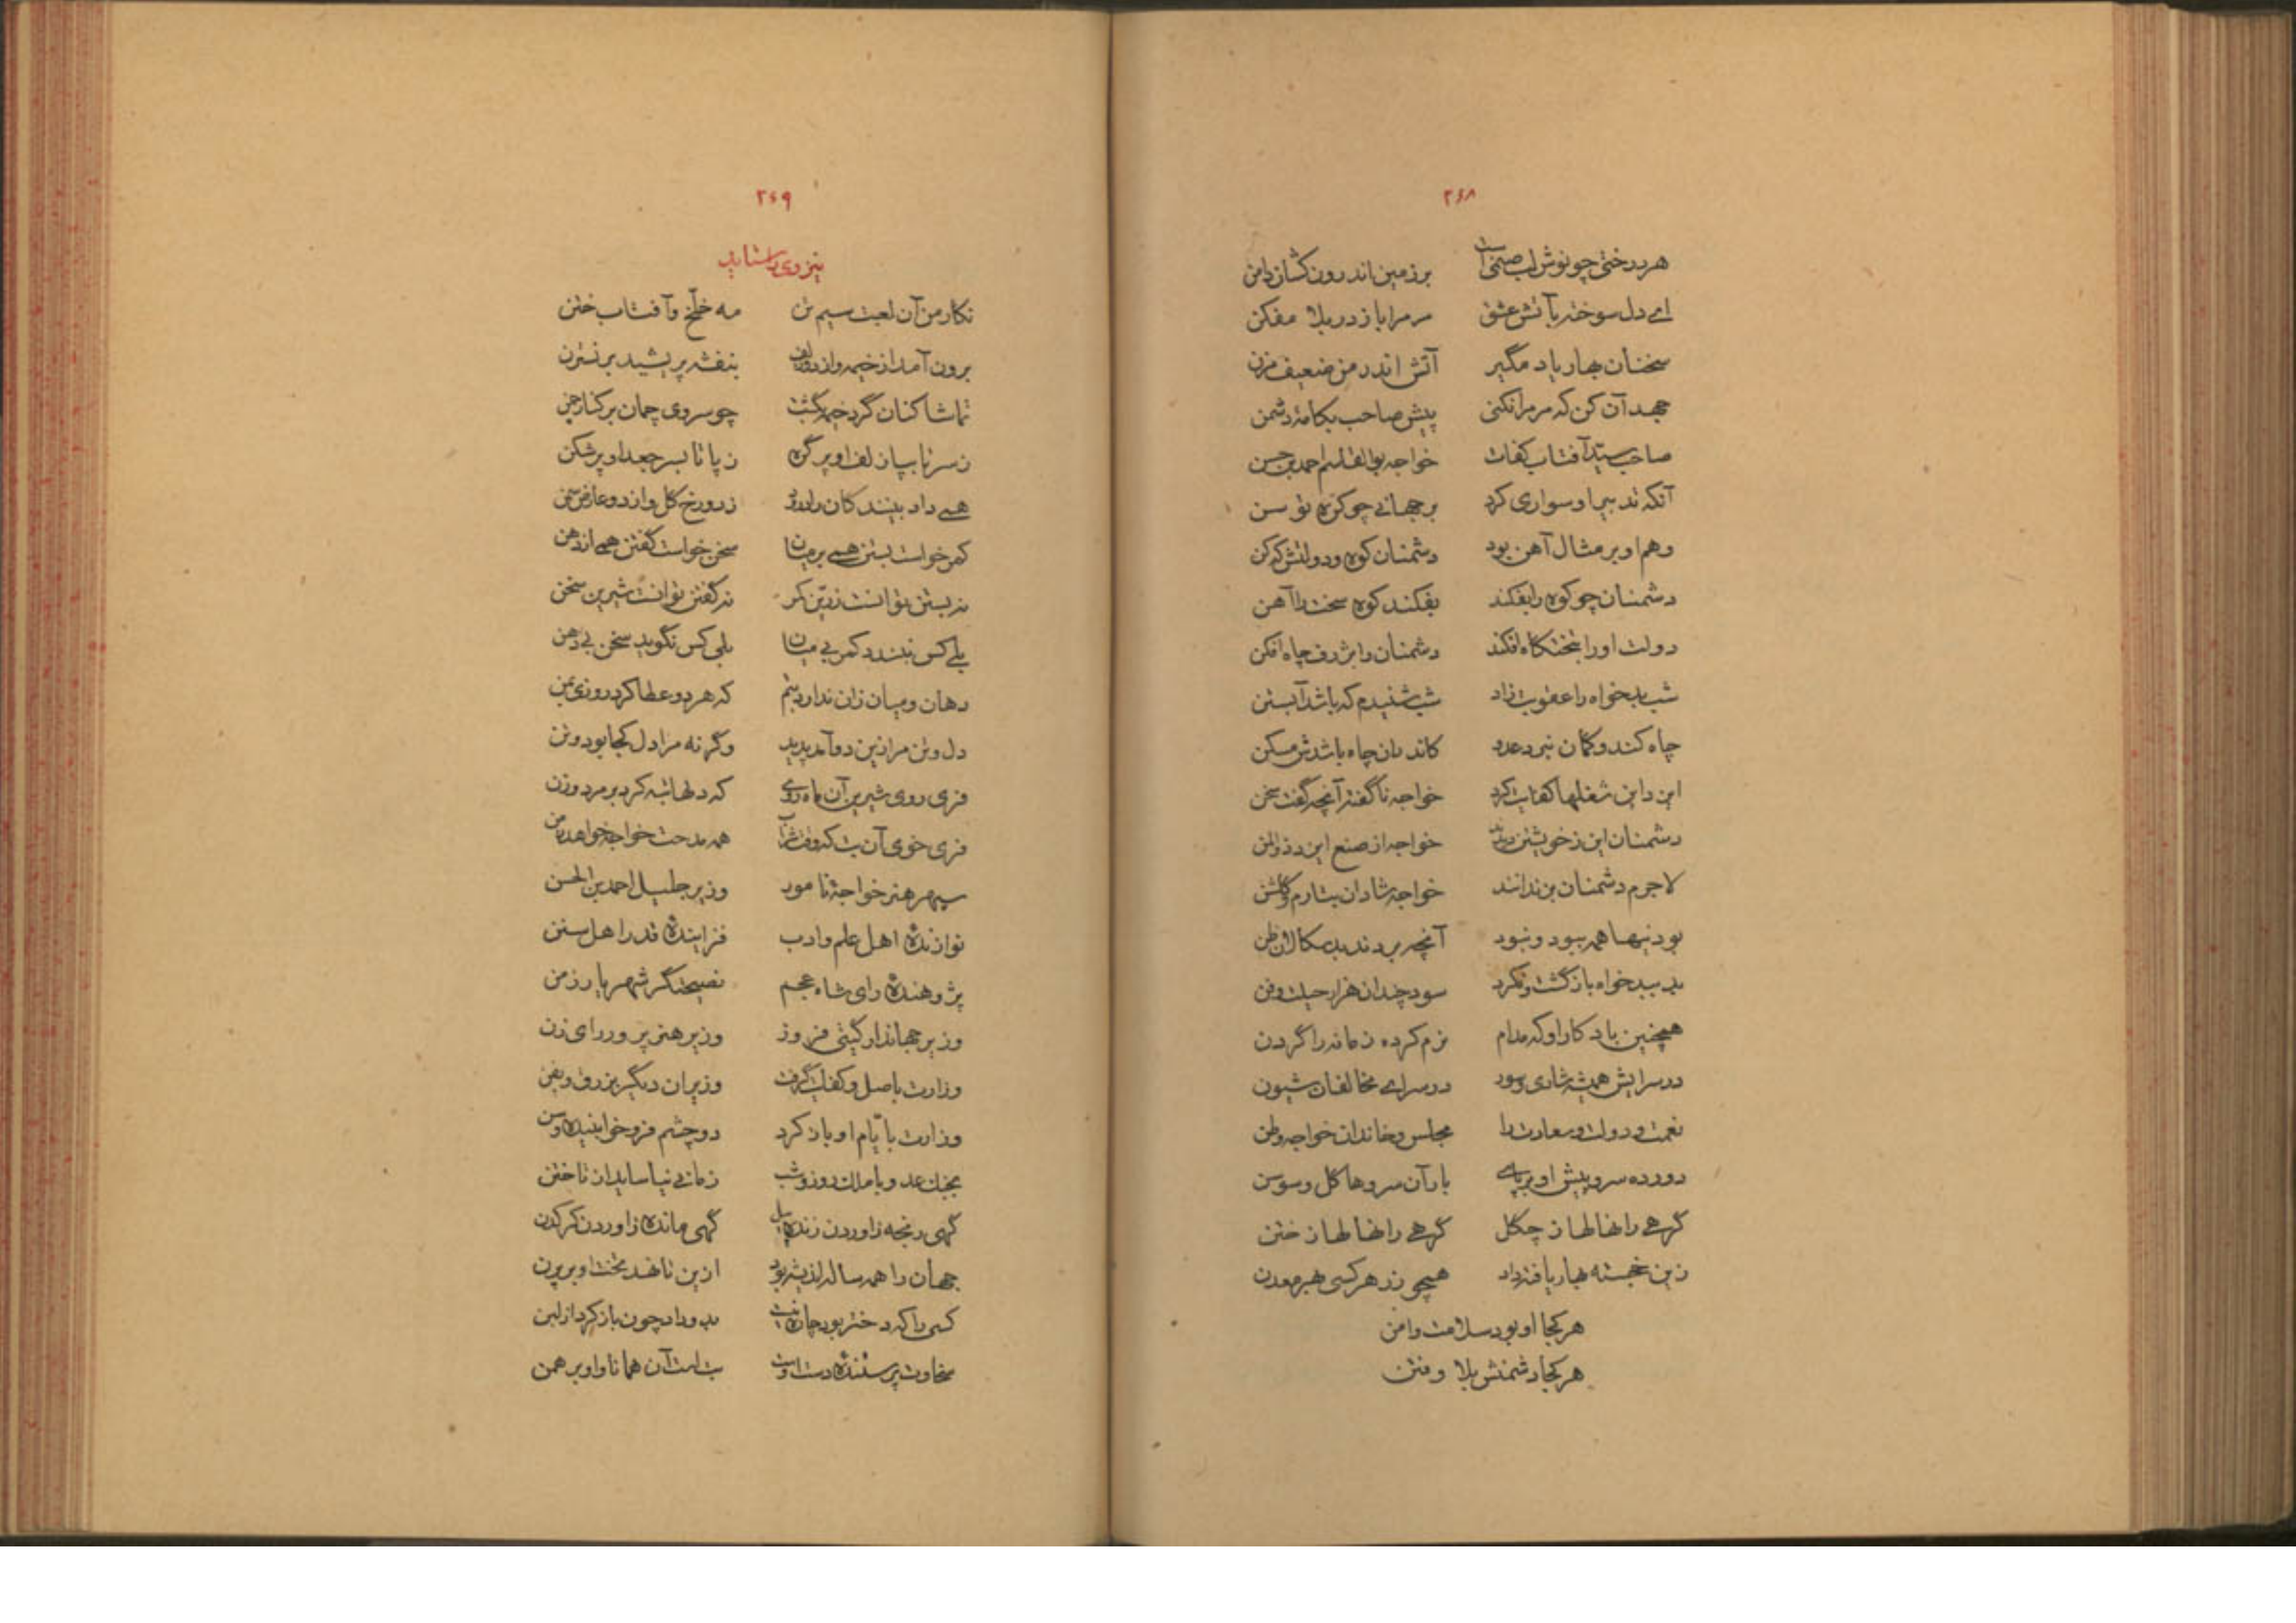 ۲۶۸
هر درختی چو نوش لب صنمی است برزمین اندرون کشان دامن
ای دل سوخته بآتش عشق مر مرا باز در بلا مفکن
سخنان بهار یاد مگیر آتش اندر من ضعیف مزن
جهد آن کن که مر مرا نکنی پیش صاحب بکامهٔ دشمن
صاحب سید آفتاب کفات خواجه بوالقاسم احمد بن حسن
آنکه تدبیر او سواری کرد بر جهانی چو کرهٔ توسن
وهم او بر مثال آهن بود دشمنان کوه و دولتش که کن
دشمنان چو کوه را بفکند بفکند کوه سخت را آهن
دولت او را بتختگاه افکند دشمنان را بژرف چاه افکن
شب بدخواه را عقوبت زاد شب شنیدم که باشد آبستن
چاه کند و گمان نبرد عدو کاندران چاه باشدش مسکن
ایزد این شغلها کفایت کرد خواجه ناگفته آنچه گفت سخن
دشمنان این ز خویشتن دیدند خواجه از صنع ایزد ذوالمن
لاجرم دشمنان بزندانند خواجه شادان بتارم و گلشن
بودنیها همه ببود و نبود آنچه بردند بدسکالان ظن
بد ببدخواه بازگشت و نکرد سود چندان هزار حیلت و فن
همچنین باد کار او که مدام نرم کرده زمانه را گردن
در سرایش همیشه شادی و سور در سرای مخالفان شیون
نعمت و دولت و سعادت را مجلس و خاندان خواجه وطن
دو رده سرو پیش او برپای بار آن سروها گل و سوسن
گرهی را نهالها ز چگل گرهی را نهالها ز ختن
زین خجسته بهار یافته داد همچو زر هر کسی بهر معدن
هر کجا او بود سلامت و امن
هر کجا دشمنش بلا و فتن
۲۶۹
نیز وی راستاید
نگار من آن لعبت سیم تن مه خلخ و آفتاب ختن
برون آمد از خیمه و از دو زلف بنفشه پریشید بر نسترن
تماشا کنان گرد خیمه بگشت چو سروی چمان بر کنار چمن
ز سر تا بپا زلف او پر گره ز پا تا بسر جعد او پر شکن
همی داد بینندگان را درود ز دو رخ گل و از دو عارض سمن
کمر خواست بستن همی بر میان سخن خواست گفتن همی از دهن
نه بستن توانست زرین کمر نه گفتن توانست شیرین سخن
بلی کس نبندد کمر بی میان بلی کس نگوید سخن بی دهن
دهان و میان زان ندارد بتم که هر دو عطا کرد روزی بمن
دل و تن مرا زین دو آمد پدید وگرنه مرا دل کجا بود و تن
فری روی شیرین آن ماه روی که دلها تبه کرد بر مرد و زن
فری خوی آن بت که وقت شراب همه مدحت خواجه خواهد ز من
سپهر هنر خواجهٔ نامور وزیر جلیل احمد بن الحسن
نوازندهٔ اهل علم و ادب فزایندهٔ قدر اهل سنن
پژوهندهٔ رای شاه عجم نصیحتگر شهریار زمن
وزیر جهاندار گیتی فروز وزیر هنرپرور رای زن
وزارت باصل و کفایت گرفت وزیران دیگر بزرق و بفن
وزارت بایّام او باز کرد دو چشم فروخوابنیده وسن
بجنگ عدو با ملک روز و شب زمانی نیاساید از تاختن
گهی رنجه ز آوردن زنده پیل گهی مانده ز آوردن کرکدن
جهان را همه ساله اندیشه بود ازین تا نهد تخت او بر پرن
کسی را که دختر بود چاره نیست بدو داد چون باز کرد از لبن
سخاوت پرستندهٔ دست اوست بت است آن همانا و او برهمن